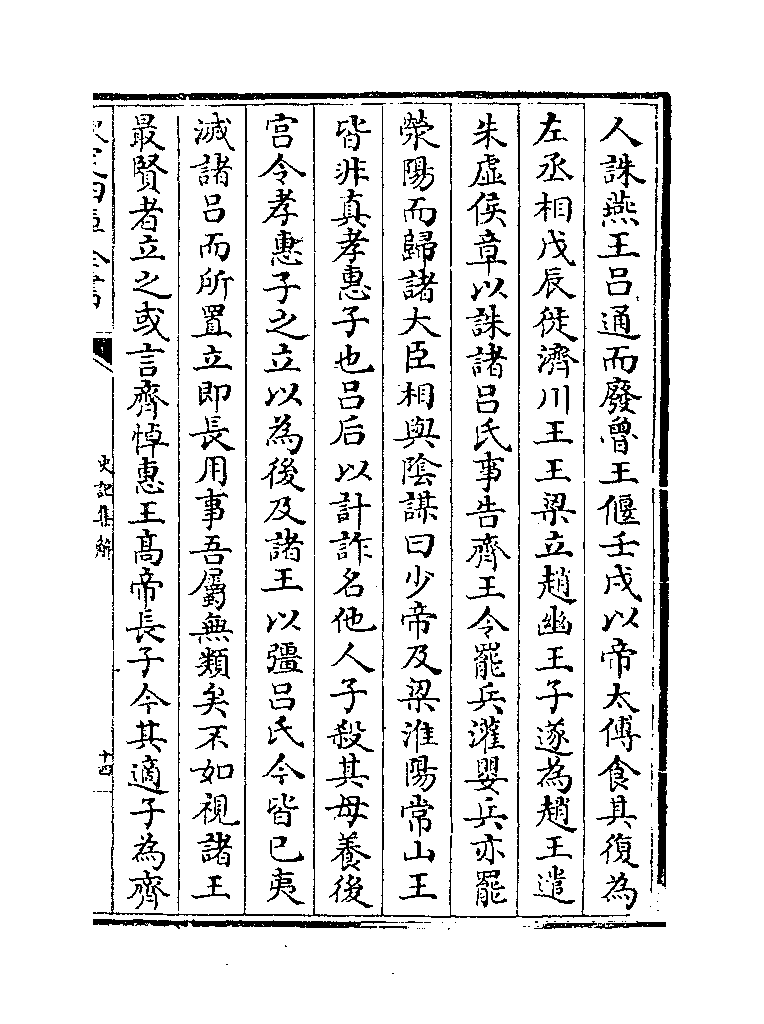 人誅燕王吕通而廢魯王偃壬戌以帝太傅食其復為
左丞相戊辰徙濟川王王梁立趙幽王子遂為趙王遣
朱虛侯章以誅諸吕氏事告齊王令罷兵灌嬰兵亦罷
滎陽而歸諸大臣相與陰謀曰少帝及梁淮陽常山王
皆非真孝惠子也吕后以計詐名他人子殺其母養後
宫令孝惠子之立以為後及諸王以彊吕氏今皆已夷
滅諸吕而所置立即長用事吾屬無類矣不如視諸王
最賢者立之或言齊悼惠王髙帝長子今其適子為齊
史記集解
十四